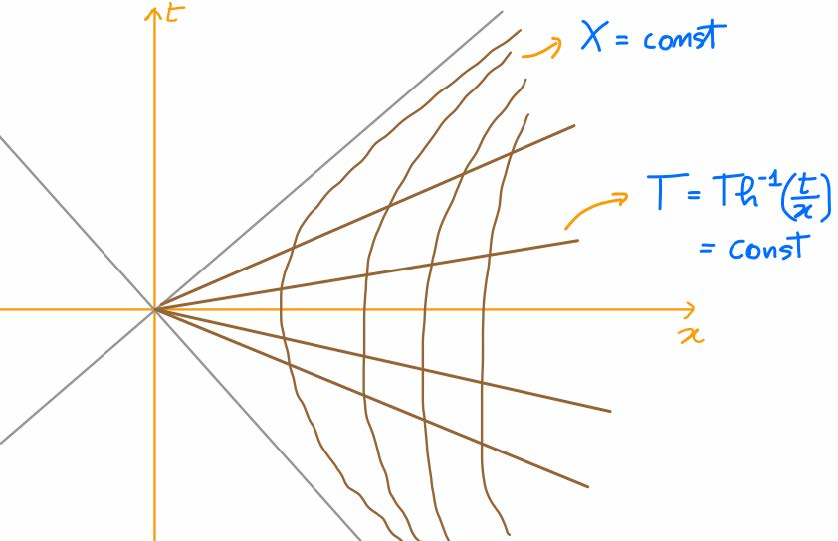 t
X = const
T = Th⁻¹(t/x)
= const
x